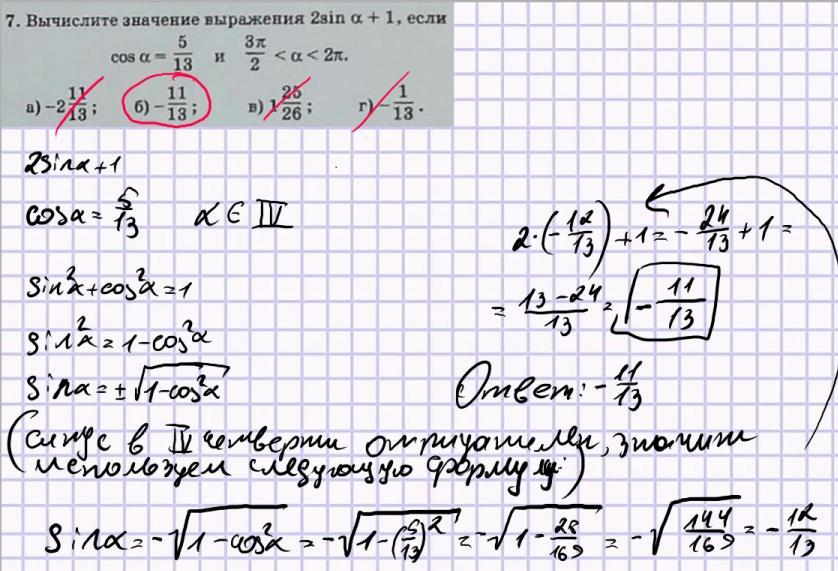 7. Вычислите значение выражения 2sin α + 1, если
cos α = 5/13 и 3π/2 < α < 2π.
а) -2 11/13; б) -11/13; в) 1 25/26; г) -1/13.
2sinα+1
cosα = 5/13 α ∈ IV
sin²α+cos²α=1
sin²α=1-cos²α
sinα=±√(1-cos²α)
(синус в IV четверти отрицателен, значит
используем следующую формулу:)
sinα=-√(1-cos²α) = -√(1-(5/13)²) = -√(1-25/169) = -√(144/169) = -12/13
2·(-12/13)+1 = -24/13+1 =
= (13-24)/13 = -11/13
Ответ: -11/13